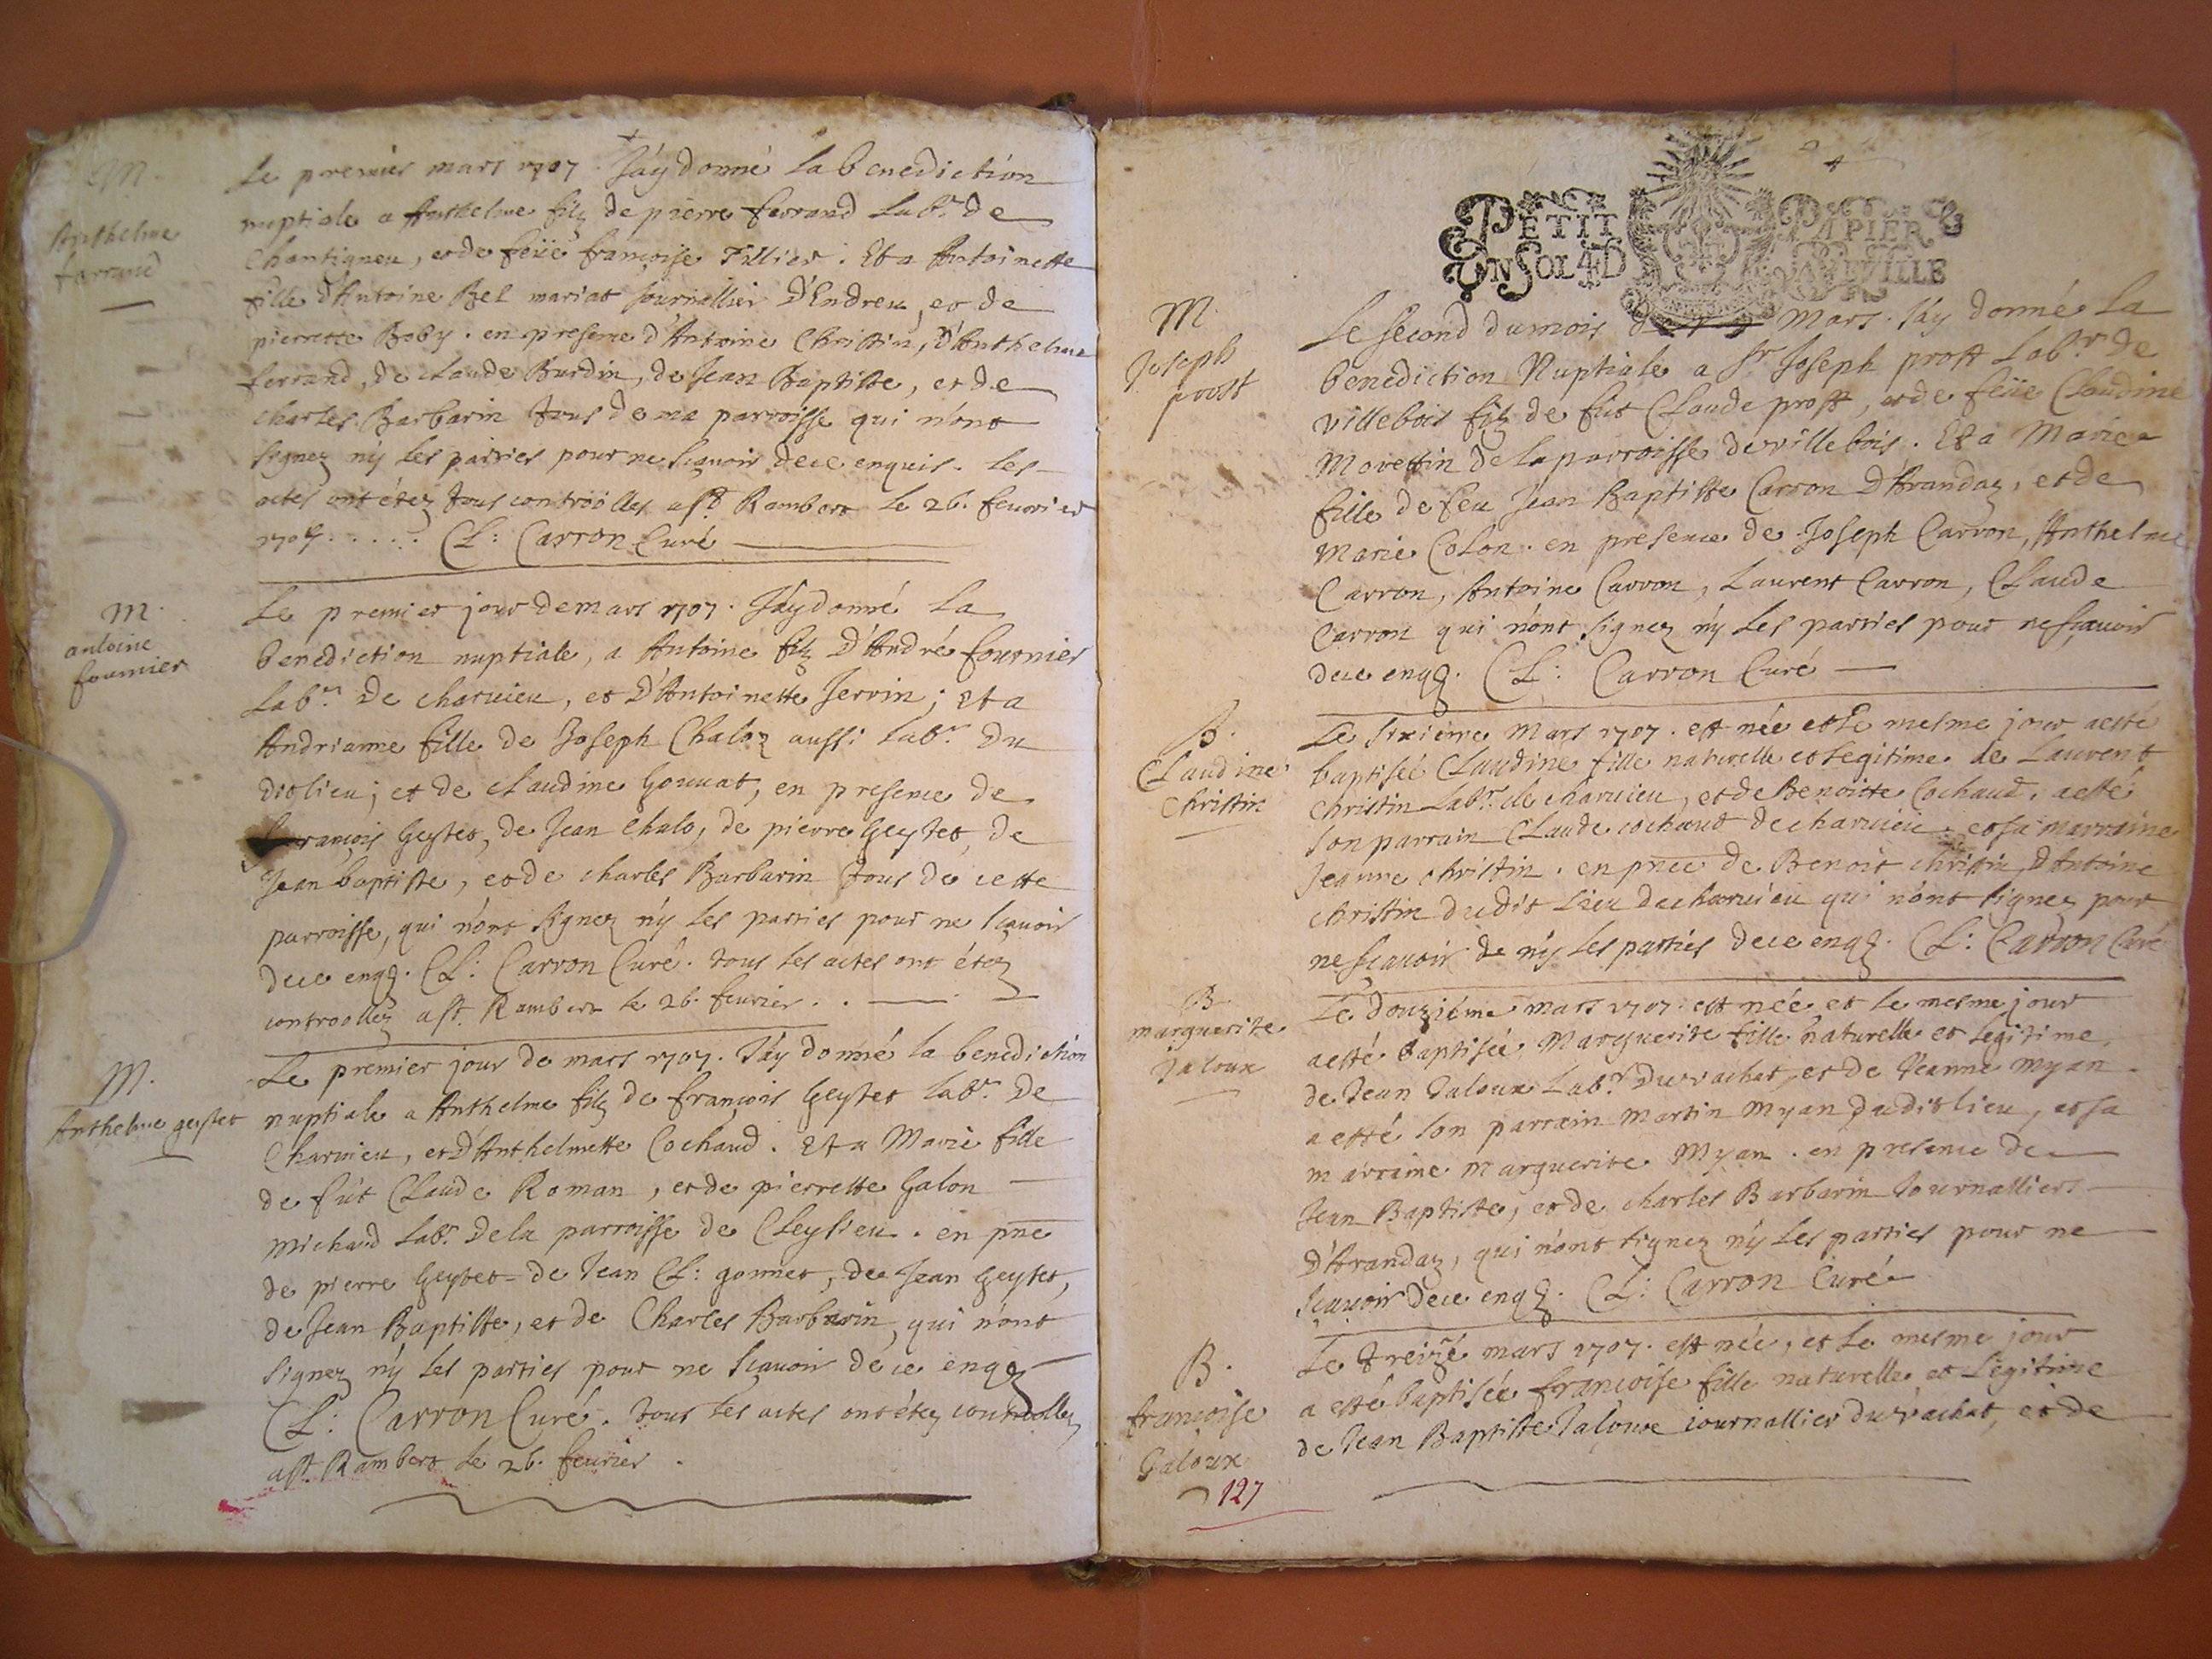 M.
Anthelme
farrand
Le premier mars 1707. J'ay donné La benediction
nuptiale a Anthelme filz de pierre ferrand Labr. de
Chantigneu, et de feüe françoise Tillier. Et a Antoinette
fille d'Antoine Bel mariat journallier D'Endreu, et de
pierrette Boby. en presence d'Antoine Christin, d'Anthelme
ferrand, de claude Burdin, de Jean Baptiste, et de
charles Barbarin tous de ma parroisse qui n'ont
signez n'y les parties pour ne sçavoir de ce enquis. Les
actes ont étez tous controölles a St Rambert le 26. feuvrier
1707. . . . . . CL: Carron Curé
M.
antoine
fournier
Le premier jour de mars 1707. J'ay donné La
benediction nuptiale, a Antoine filz D'André fournier
Labr. De charvieu, et D'Antoinette Jervin; Et a
Andrianne fille de Joseph Chaloz aussi Labr. Du
dit lieu; et de claudine Gouvat, en presence de
françois Geytet, de Jean Chalo, de pierre Geytet, de
Jean baptiste, et de charles Barbarin tous de cette
parroisse, qui n'ont signez n'y les parties pour ne sçavoir
de ce enqz. CL: Carron Curé. tous les actes ont étez
controollez a St. Rambert le 26. feurier. .
M.
Anthelme geytet
Le premier jour de mars 1707. J'ay donné la benediction
nuptiale a Anthelme filz de françois Geytet Labr. De
Charvieu, et D'Anthelmette Cochaud. Et a Marie fille
de fut Claude Roman, et de pierrette Galon
Michaud Labr. De la parroisse de Cleysieu. en pnce
de pierre Geytet - de Jean CL: gonnet, de Jean Geytet,
de Jean Baptiste, et de Charles Barbarin, qui n'ont
signez n'y les parties pour ne sçavoir de ce enqz
CL: Carron Curé. tous les actes ont étez controollez
a St. Rambert le 26. feurier.
4
PETIT PAPIER
UN SOL 4 D LA VILLE
M.
Joseph
prost
Le second du mois de Mars. J'ay donné La
benediction Nuptiale a Sr Joseph prost Labr. De
villebois filz de fut Claude prost, et de feüe Claudine
Morettin de la parroisse de villebois. Et a Marie
fille de feu Jean Baptiste Carron D'Arandaz, et de
Marie Colon. en presence de Joseph Carron, Anthelme
Carron, Antoine Carron, Laurent Carron, Claude
Carron qui n'ont signez n'y les parties pour ne sçavoir
de ce enqz. CL: Carron Curé
B.
Claudine
Christin
Le sixième Mars 1707. est née et Le mesme jour a esté
baptiseé Claudine fille naturelle et legitime de Laurent
christin Labr. de charvieu, et de Benoitte Cochaud. a esté
son parrain Claude cochaud de charvieu. et sa marraine
Jeanne christin. en pnce de Benoit christin, D'Antoine
christin dudit Lieu de charvieu qui n'ont signez pour
ne sçavoir de n'y les parties de ce enqz. CL: Carron Curé
B.
marguerite
Jaloux
Le Douziéme mars 1707. est née et le mesme jour
a esté baptiseé Marguerite fille naturelle et legitime
de Jean Jaloux Labr. Du rachat, et de Jeanne myan.
a esté son parrain Martin Myan dudit lieu, et sa
marraine marguerite Myan. en presence de
Jean Baptiste, et de charles Barbarin Journalliers
D'Arandaz, qui n'ont signez n'y les parties pour ne
sçavoir de ce enqz. CL: Carron Curé
B.
françoise
Galoux
127
Le treizé mars 1707. est née, et Le mesme jour
a esté baptisée françoise fille naturelle et Legitime
de Jean Baptiste Jaloux journallier du rachat, et de